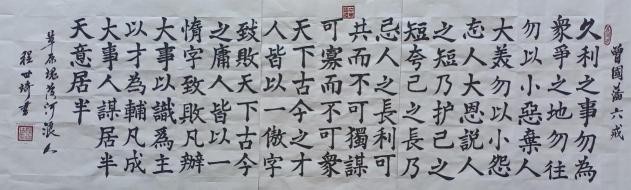 曾國藩六戒
久利之事勿為
衆爭之地勿往
勿以小惡棄人
大美勿以小怨
忘人大恩説人
之短乃护己之
短夸己之長乃
忌人之長利可
共而不可獨謀
可寡而不可衆
天下古今之才
人皆以一傲字
致敗天下古今
之庸人皆以一
惰字致敗凡辦
大事以識為主
以才為輔凡成
大事人謀居半
天意居半
草原魂黄河浪人
程世琦書